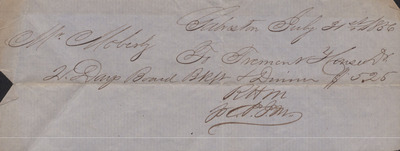 Galveston July 21st 1856
Mr Moberly
To Tremont House Dr
2 Days Board Bkft & Dinner $5.25